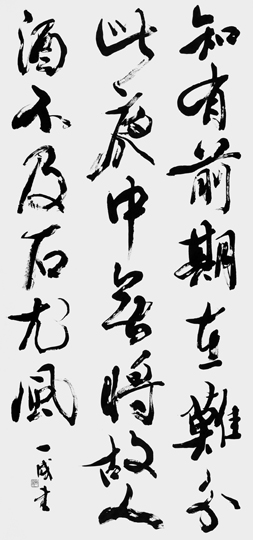 知有前期在難分
此夜中無將故人
酒不及石尤風
一成書